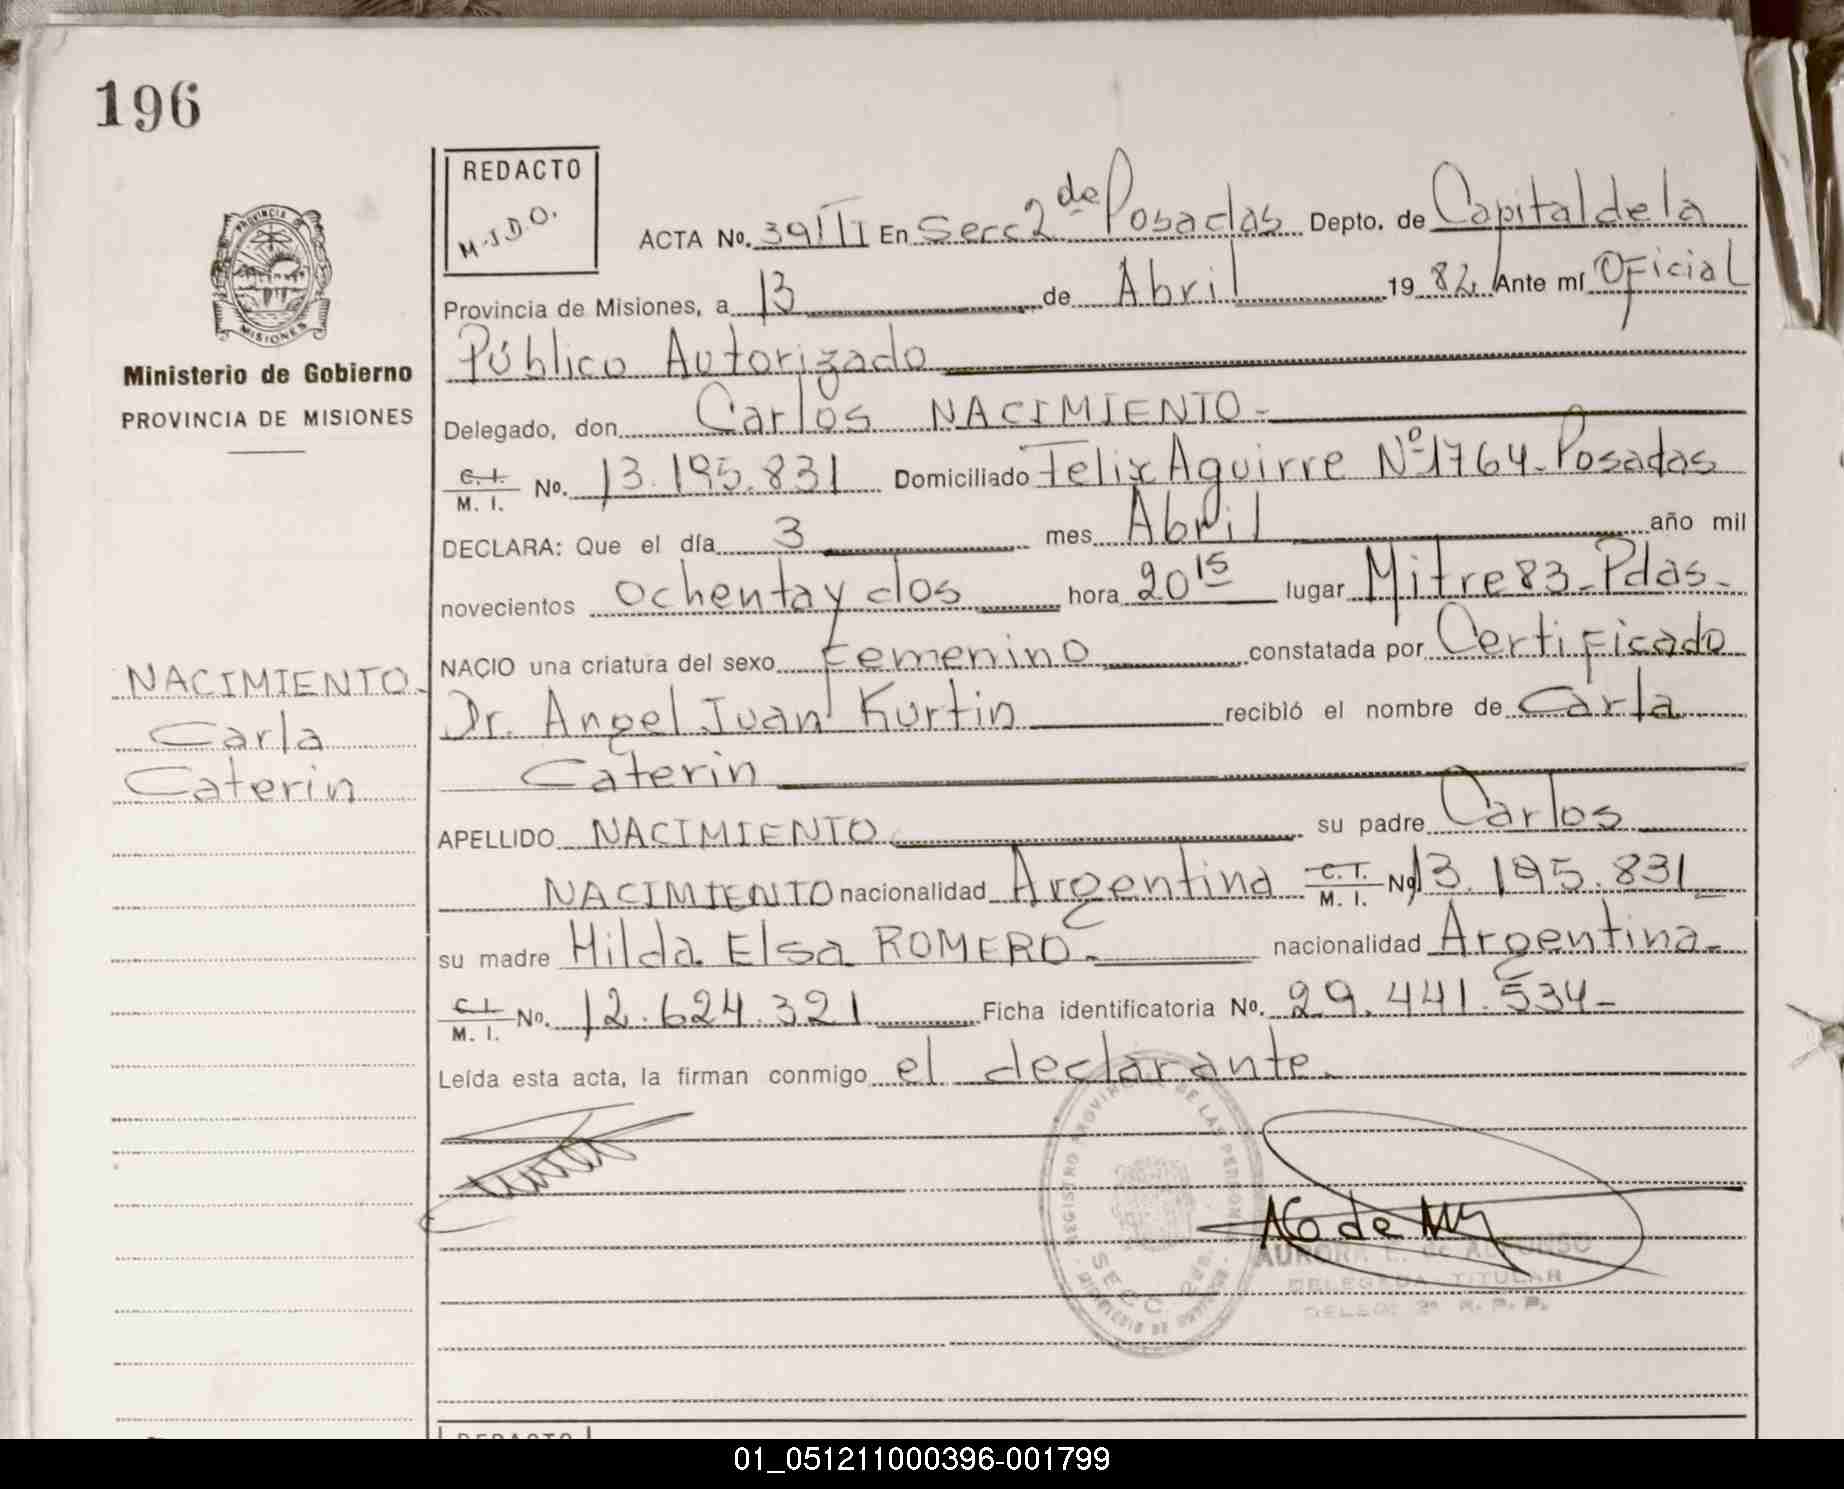 196
REDACTO
M.J.D.O.
PROVINCIA DE
MISIONES
Ministerio de Gobierno
PROVINCIA DE MISIONES
ACTA No. 391 TI En Secc 2 de Posadas Depto. de Capital de la
Provincia de Misiones, a 13 de Abril 1982 Ante mí Oficial
Público Autorizado
Delegado, don Carlos NACIMIENTO-
C.I. M. I. No. 13.195.831 Domiciliado Felix Aguirre Nº1764-Posadas
DECLARA: Que el día 3 mes Abril año mil
novecientos ochenta y dos hora 20 15 lugar Mitre 83-Pdas-
NACIO una criatura del sexo Femenino constatada por Certificado
Dr. Angel Juan Kurtin recibió el nombre de Carla
Caterin
NACIMIENTO-
Carla
Caterin
APELLIDO NACIMIENTO su padre Carlos
NACIMIENTO nacionalidad Argentina C.I. M. I. No 13.195.831
su madre Hilda Elsa ROMERO- nacionalidad Argentina-
C.I. M. I. No. 12.624.321 Ficha identificatoria No. 29.441.534-
Leída esta acta, la firman conmigo el declarante.
REGISTRO PROVINCIAL DE LAS PERSONAS
SECC 2da.
AURORA E. de ALFONSO
DELEGADA TITULAR
DELEG. 2ª R. P. P.
REDACTO
01_051211000396-001799